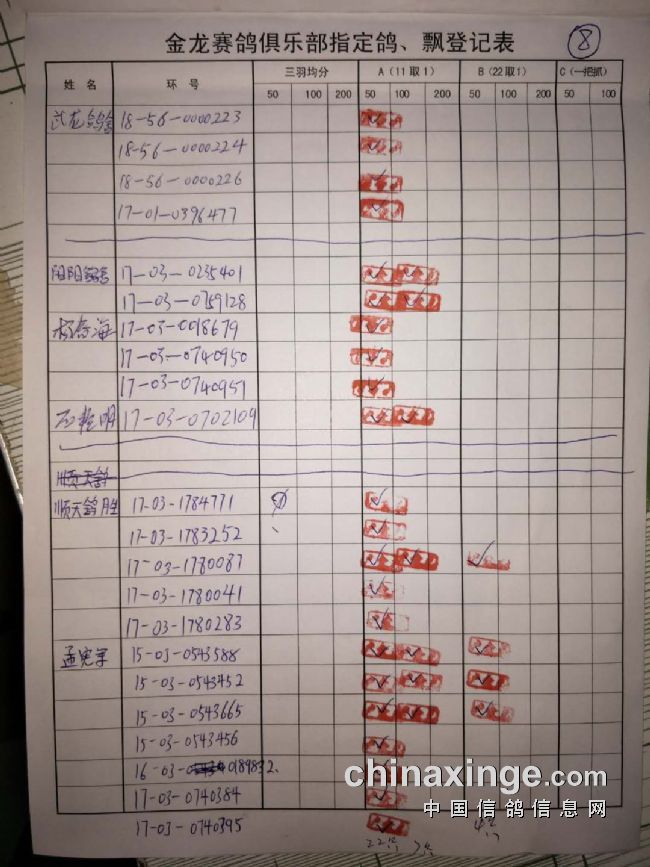 金龙赛鸽俱乐部指定鸽、飘登记表 ⑧
姓名 环号 三羽均分 A(11取1) B(22取1) C(一把抓)
50 100 200 50 100 200 50 100 200 50 100
18-56-0000223
18-56-0000224
18-56-0000226
17-01-0396477
17-03-0235401
17-03-0759128
17-03-0018679
17-03-0740950
17-03-0740957
17-03-0702109
顺天鸽
顺天鸽 胜 17-03-1784771
17-03-1783252
17-03-1780087
17-03-1780041
17-03-1780283
孟宪军 15-03-0543588
15-03-0543452
15-03-0543665
15-03-0543456
16-03-0189832
17-03-0740384
17-03-0740395
chinaxinge.com
中国信鸽信息网